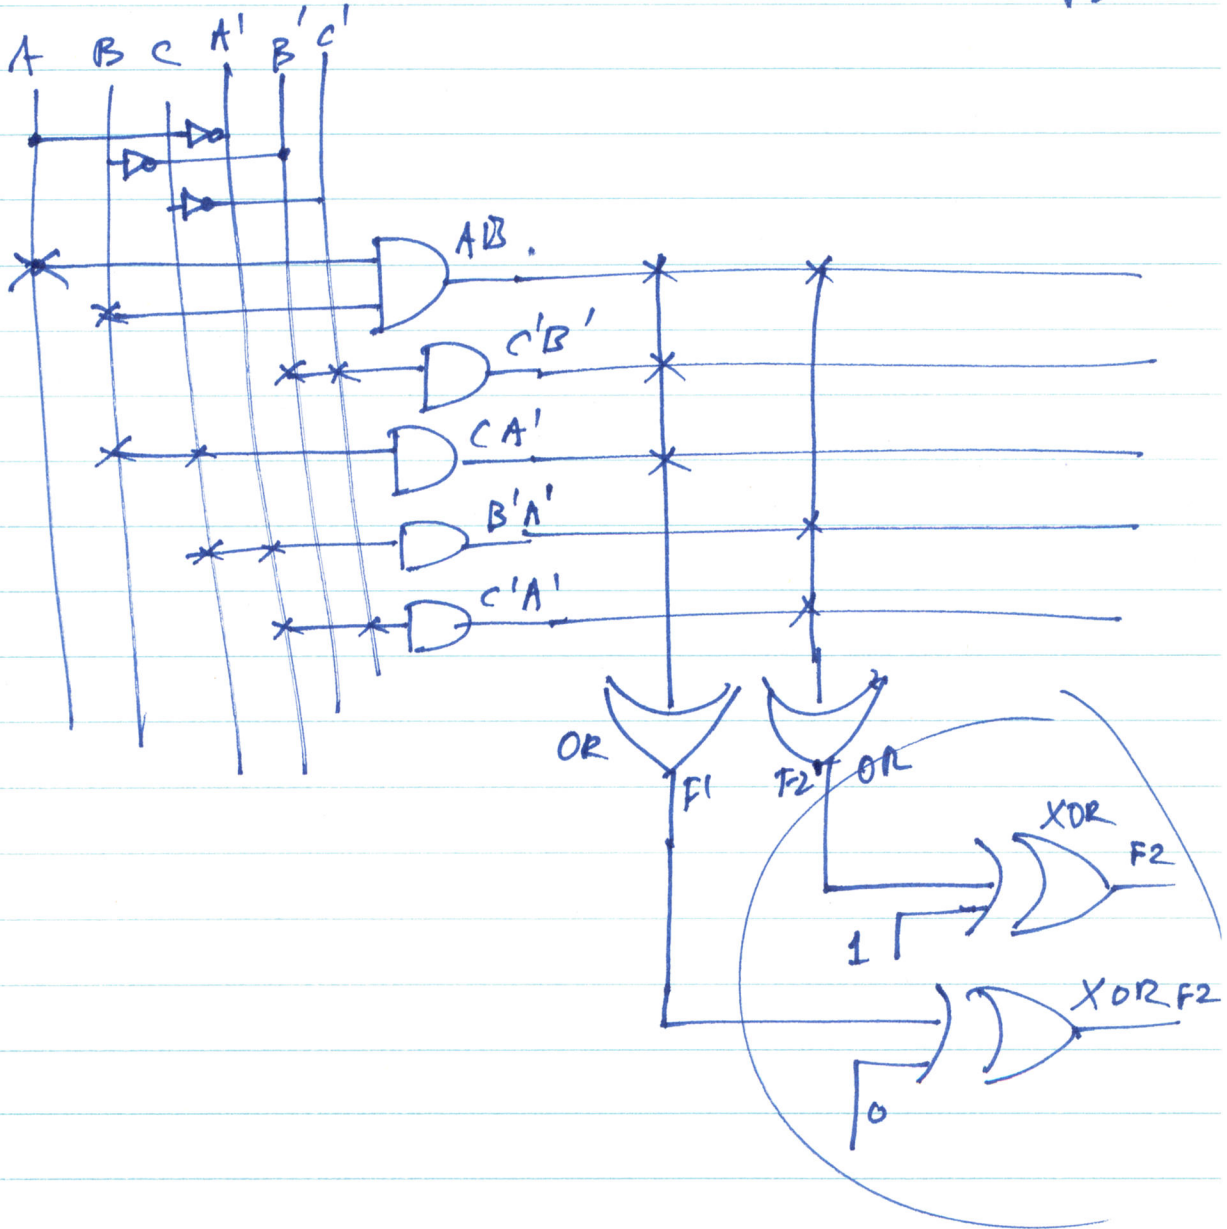 A B C A' B' C'
AB
C'B'
CA'
B'A'
C'A'
OR
F1
F2'
OR
XOR
F2
1
XOR F2
0